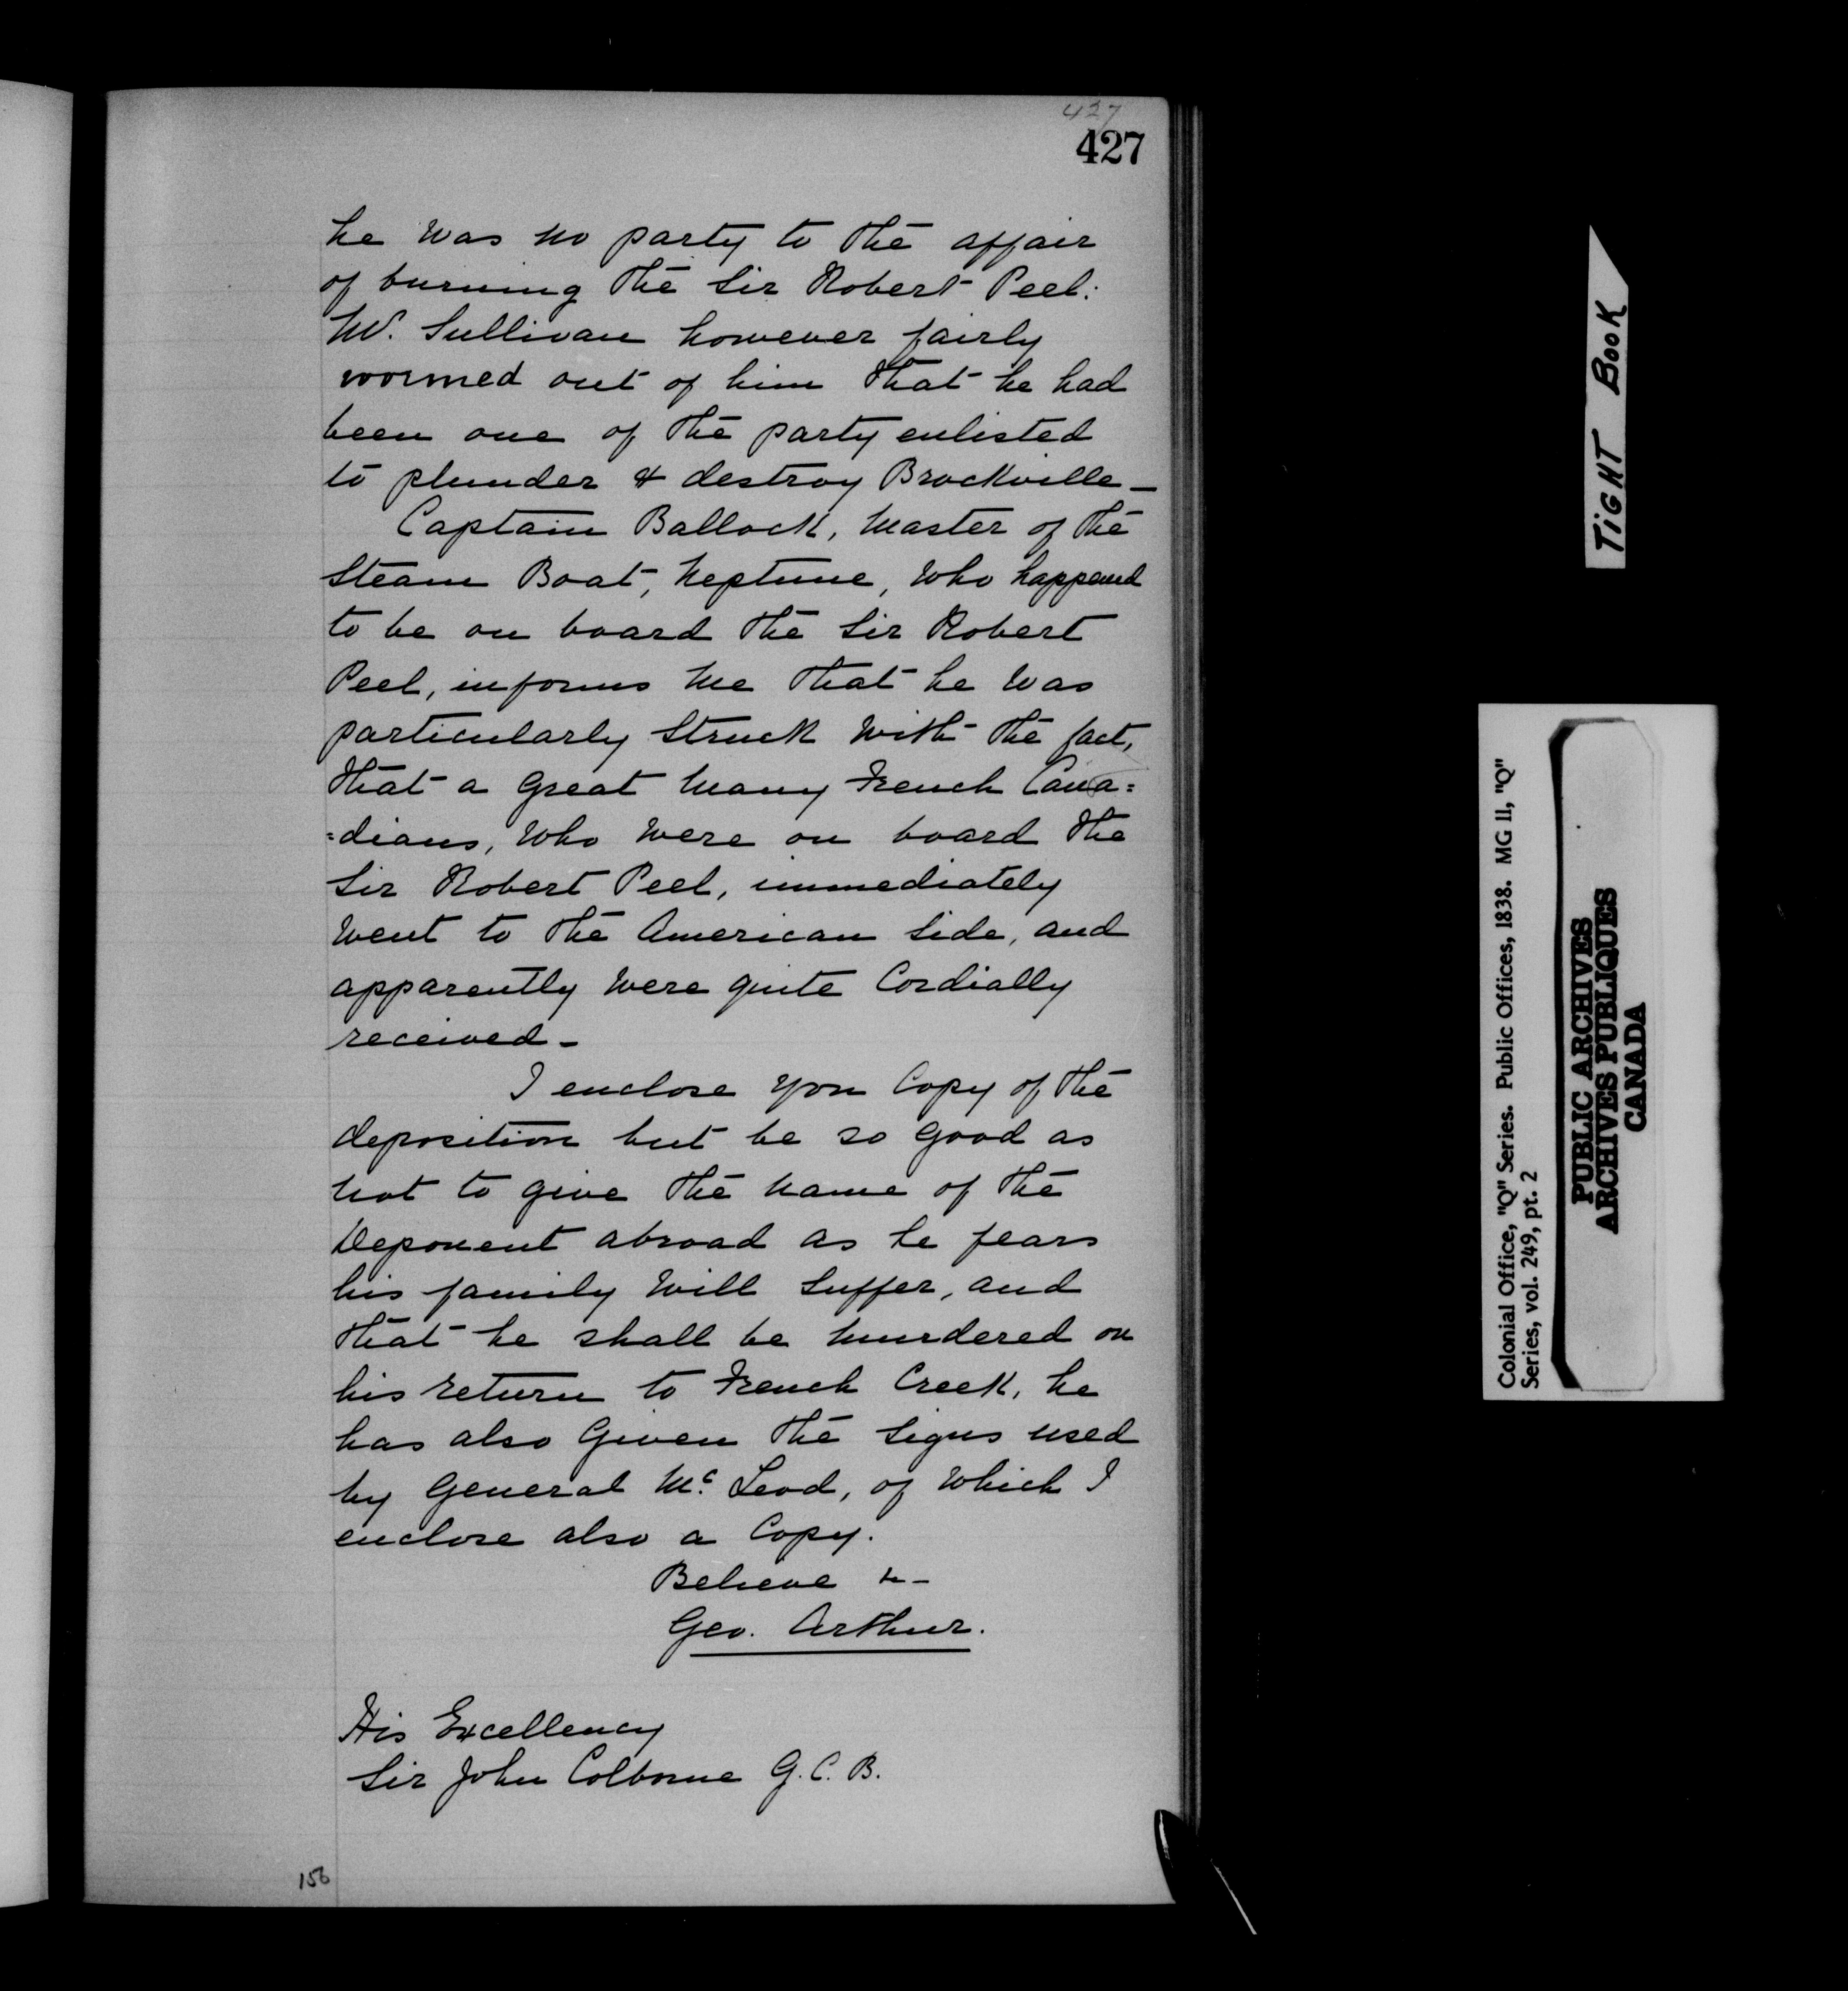 427
427
he was no party to the affair
of burning the Sir Robert Peel:
Mr. Sullivan however fairly
wormed out of him that he had
been one of the party enlisted
to plunder & destroy Brockville—
Captain Ballock, Master of the
Steam Boat, Neptune, who happened
to be on board the Sir Robert
Peel, informs me that he was
particularly struck with the fact,
that a great many French Cana=
=dians, who were on board the
Sir Robert Peel, immediately
went to the American side, and
apparently were quite cordially
received—
I enclose you Copy of the
deposition but be so good as
not to give the name of the
Deponent abroad as he fears
his family will suffer, and
that he shall be murdered on
his return to French Creek, he
has also given the signs used
by General Mc. Leod, of which I
enclose also a Copy.
Believe &—
Geo. Arthur.
His Excellency
Sir John Colborne G.C.B.
156
TIGHT BOOK
Colonial Office, "Q" Series. Public Offices, 1838. MG 11, "Q"
Series, vol. 249, pt. 2
PUBLIC ARCHIVES
ARCHIVES PUBLIQUES
CANADA